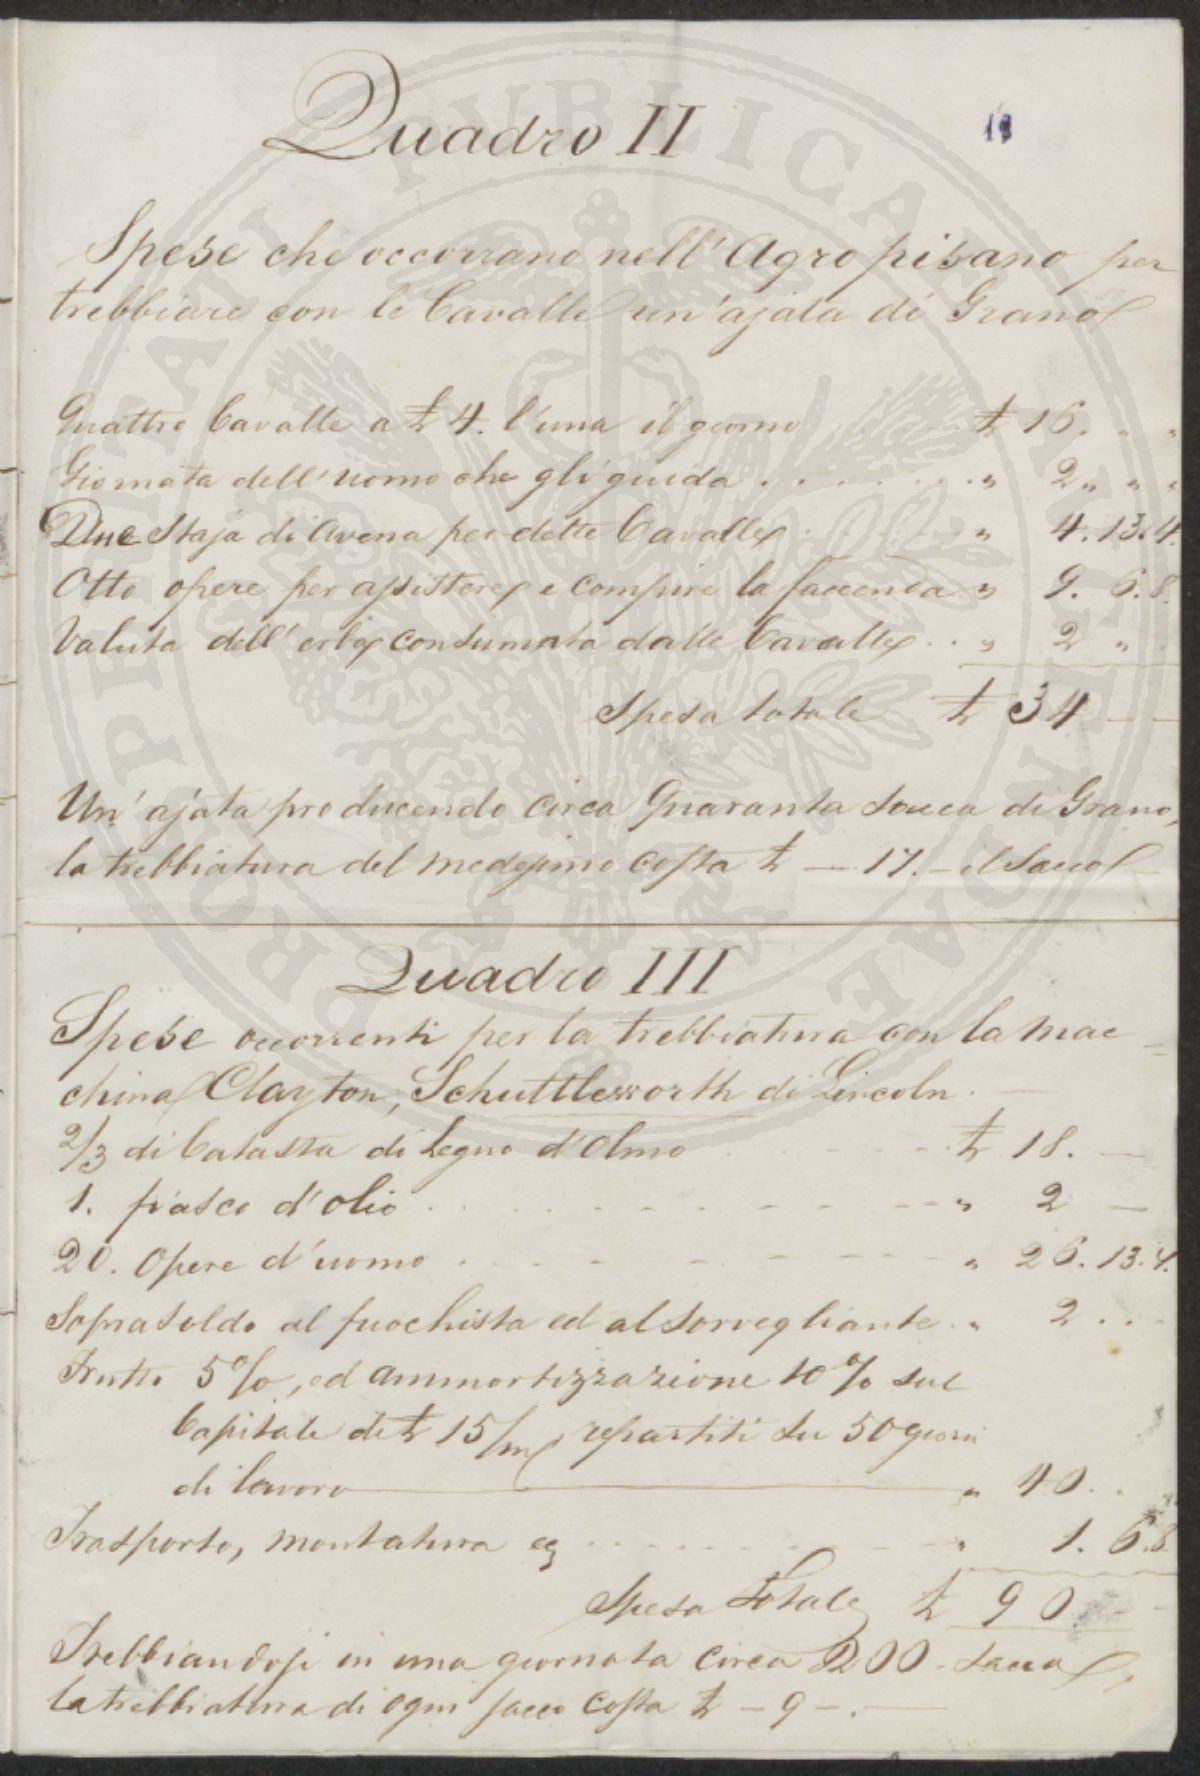 19
Quadro II
Spese che occorrano nell'Agro pisano per
trebbiare con le Cavalle un'ajata di Grano
Quattro Cavalle a £ 4. l'una il giorno £ 16. " "
Giornata dell'uomo che gli guida . . . . . . . " 2 " " "
Due Staja di Avena per dette Cavalle . . . . . " 4. 13. 4.
Otto opere per assistere e compire la faccenda " 9. 6. 8.
Valuta dell'erba consumata dalle Cavalle . . " 2 " .
Spesa totale £ 34 — —
Un'ajata producendo circa Quaranta sacca di Grano,
la trebbiatura del medesimo costa £ — 17. — il Sacco —
Quadro III
Spese occorrenti per la trebbiatura con la mac=
china Clayton, Schuttleworth di Lincoln. —
2/3 di Catasta di Legno d'Olmo . - - - - £ 18. —
1. fiasco d'olio . . . . - - - - - - " 2 —
20. Opere d'uomo . . . - - - - - " 26. 13. 4.
Soprasoldo al fuochista ed al sorvegliante . " 2 . . .
Frutto 5%, ed ammortizzazione 10% sul
Capitale di £ 15/m repartiti su 50 giorni
di lavoro — " 40. . .
Trasporto, montatura ec . . . . . . . " 1. 6. 8.
Spesa Totale £ 90 - -
Trebbiandosi in una giornata circa 200 - sacca,
la trebbiatura di ogni sacco costa £ - 9 - . —
PROSPERITATI PUBLICAE AUGENDAE